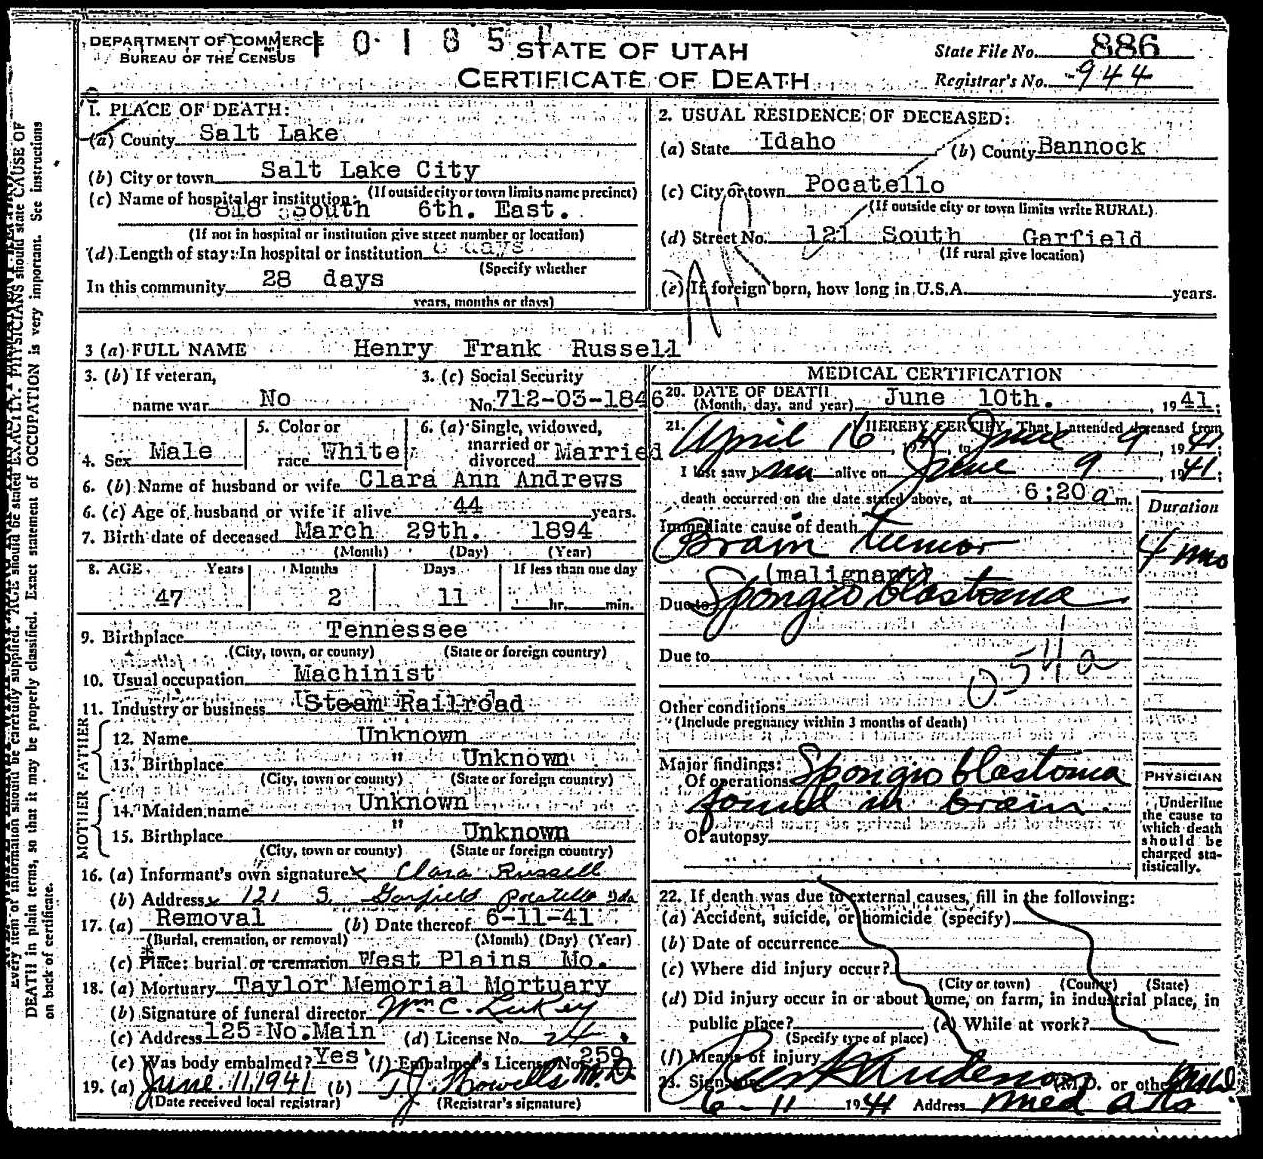 DEPARTMENT OF COMMERCE
BUREAU OF THE CENSUS
STATE OF UTAH
CERTIFICATE OF DEATH
State File No. 886
Registrar's No. 944
1. PLACE OF DEATH:
(a) County Salt Lake
(b) City or town Salt Lake City
(If outside city or town limits name precinct)
(c) Name of hospital or institution:
818 South 6th. East.
(If not in hospital or institution give street number or location)
(d) Length of stay: In hospital or institution days
(Specify whether
In this community 28 days
years, months or days)
2. USUAL RESIDENCE OF DECEASED:
(a) State Idaho (b) County Bannock
(c) City or town Pocatello
(If outside city or town limits write RURAL)
(d) Street No. 121 South Garfield
(If rural give location)
(e) If foreign born, how long in U.S.A. years.
3 (a) FULL NAME Henry Frank Russell
3. (b) If veteran, name war No
3. (c) Social Security No. 712-03-1846
4. Sex Male
5. Color or race White
6. (a) Single, widowed, married or divorced Married
6. (b) Name of husband or wife Clara Ann Andrews
6. (c) Age of husband or wife if alive 44 years.
7. Birth date of deceased March 29th. 1894
(Month) (Day) (Year)
8. AGE Years Months Days If less than one day
47 2 11 hr. min.
9. Birthplace Tennessee
(City, town, or county) (State or foreign country)
10. Usual occupation Machinist
11. Industry or business Steam Railroad
FATHER
12. Name Unknown
13. Birthplace " Unknown
(City, town or county) (State or foreign country)
MOTHER
14. Maiden name Unknown
15. Birthplace " Unknown
(City, town or county) (State or foreign country)
16. (a) Informant's own signature x Clara Russell
(b) Address x 121 S. Garfield Pocatello Ida
17. (a) Removal (b) Date thereof 6-11-41
(Burial, cremation, or removal) (Month) (Day) (Year)
(c) Place: burial or cremation West Plains Mo.
18. (a) Mortuary Taylor Memorial Mortuary
(b) Signature of funeral director Wm C.
(c) Address 125 No. Main (d) License No. 24
(e) Was body embalmed? Yes (f) Embalmer's License No. 259
19. (a) June 11, 1941 (b) T. J. Howells M.D.
(Date received local registrar) (Registrar's signature)
MEDICAL CERTIFICATION
20. DATE OF DEATH
(Month, day, and year) June 10th. , 1941;
21. I HEREBY CERTIFY, That I attended deceased from
April 16 , 1941, to June 9 , 1941
I last saw him alive on June 9 , 1941;
death occurred on the date stated above, at 6:20 a m.
Duration
Immediate cause of death
Brain tumor 4 mo
(malignant)
Due to Spongioblastoma
Due to
054a
Other conditions
(Include pregnancy within 3 months of death)
Major findings:
Of operations Spongioblastoma
found in brain.
Of autopsy
PHYSICIAN
Underline
the cause to
which death
should be
charged sta-
tistically.
22. If death was due to external causes, fill in the following:
(a) Accident, suicide, or homicide (specify)
(b) Date of occurrence
(c) Where did injury occur?
(City or town) (County) (State)
(d) Did injury occur in or about home, on farm, in industrial place, in
public place? (e) While at work?
(Specify type of place)
(f) Means of injury
23. Signature Anderson (M.D. or other)
6-11 1941 Address Med Arts
AGE should be stated EXACTLY. PHYSICIANS should state CAUSE OF
DEATH in plain terms, so that it may be properly classified. Exact statement of OCCUPATION is very important. See instructions
on back of certificate.